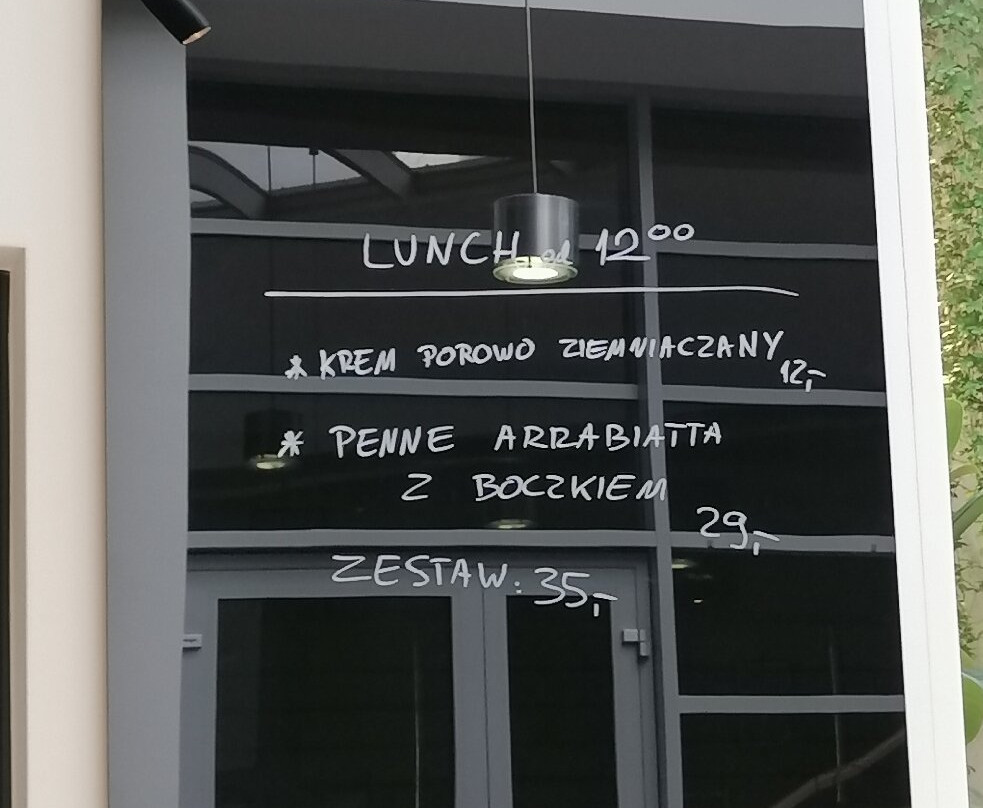 LUNCH od 12⁰⁰
* KREM POROWO ZIEMNIACZANY
12,-
* PENNE ARRABIATTA
Z BOCZKIEM
29,-
ZESTAW: 35,-